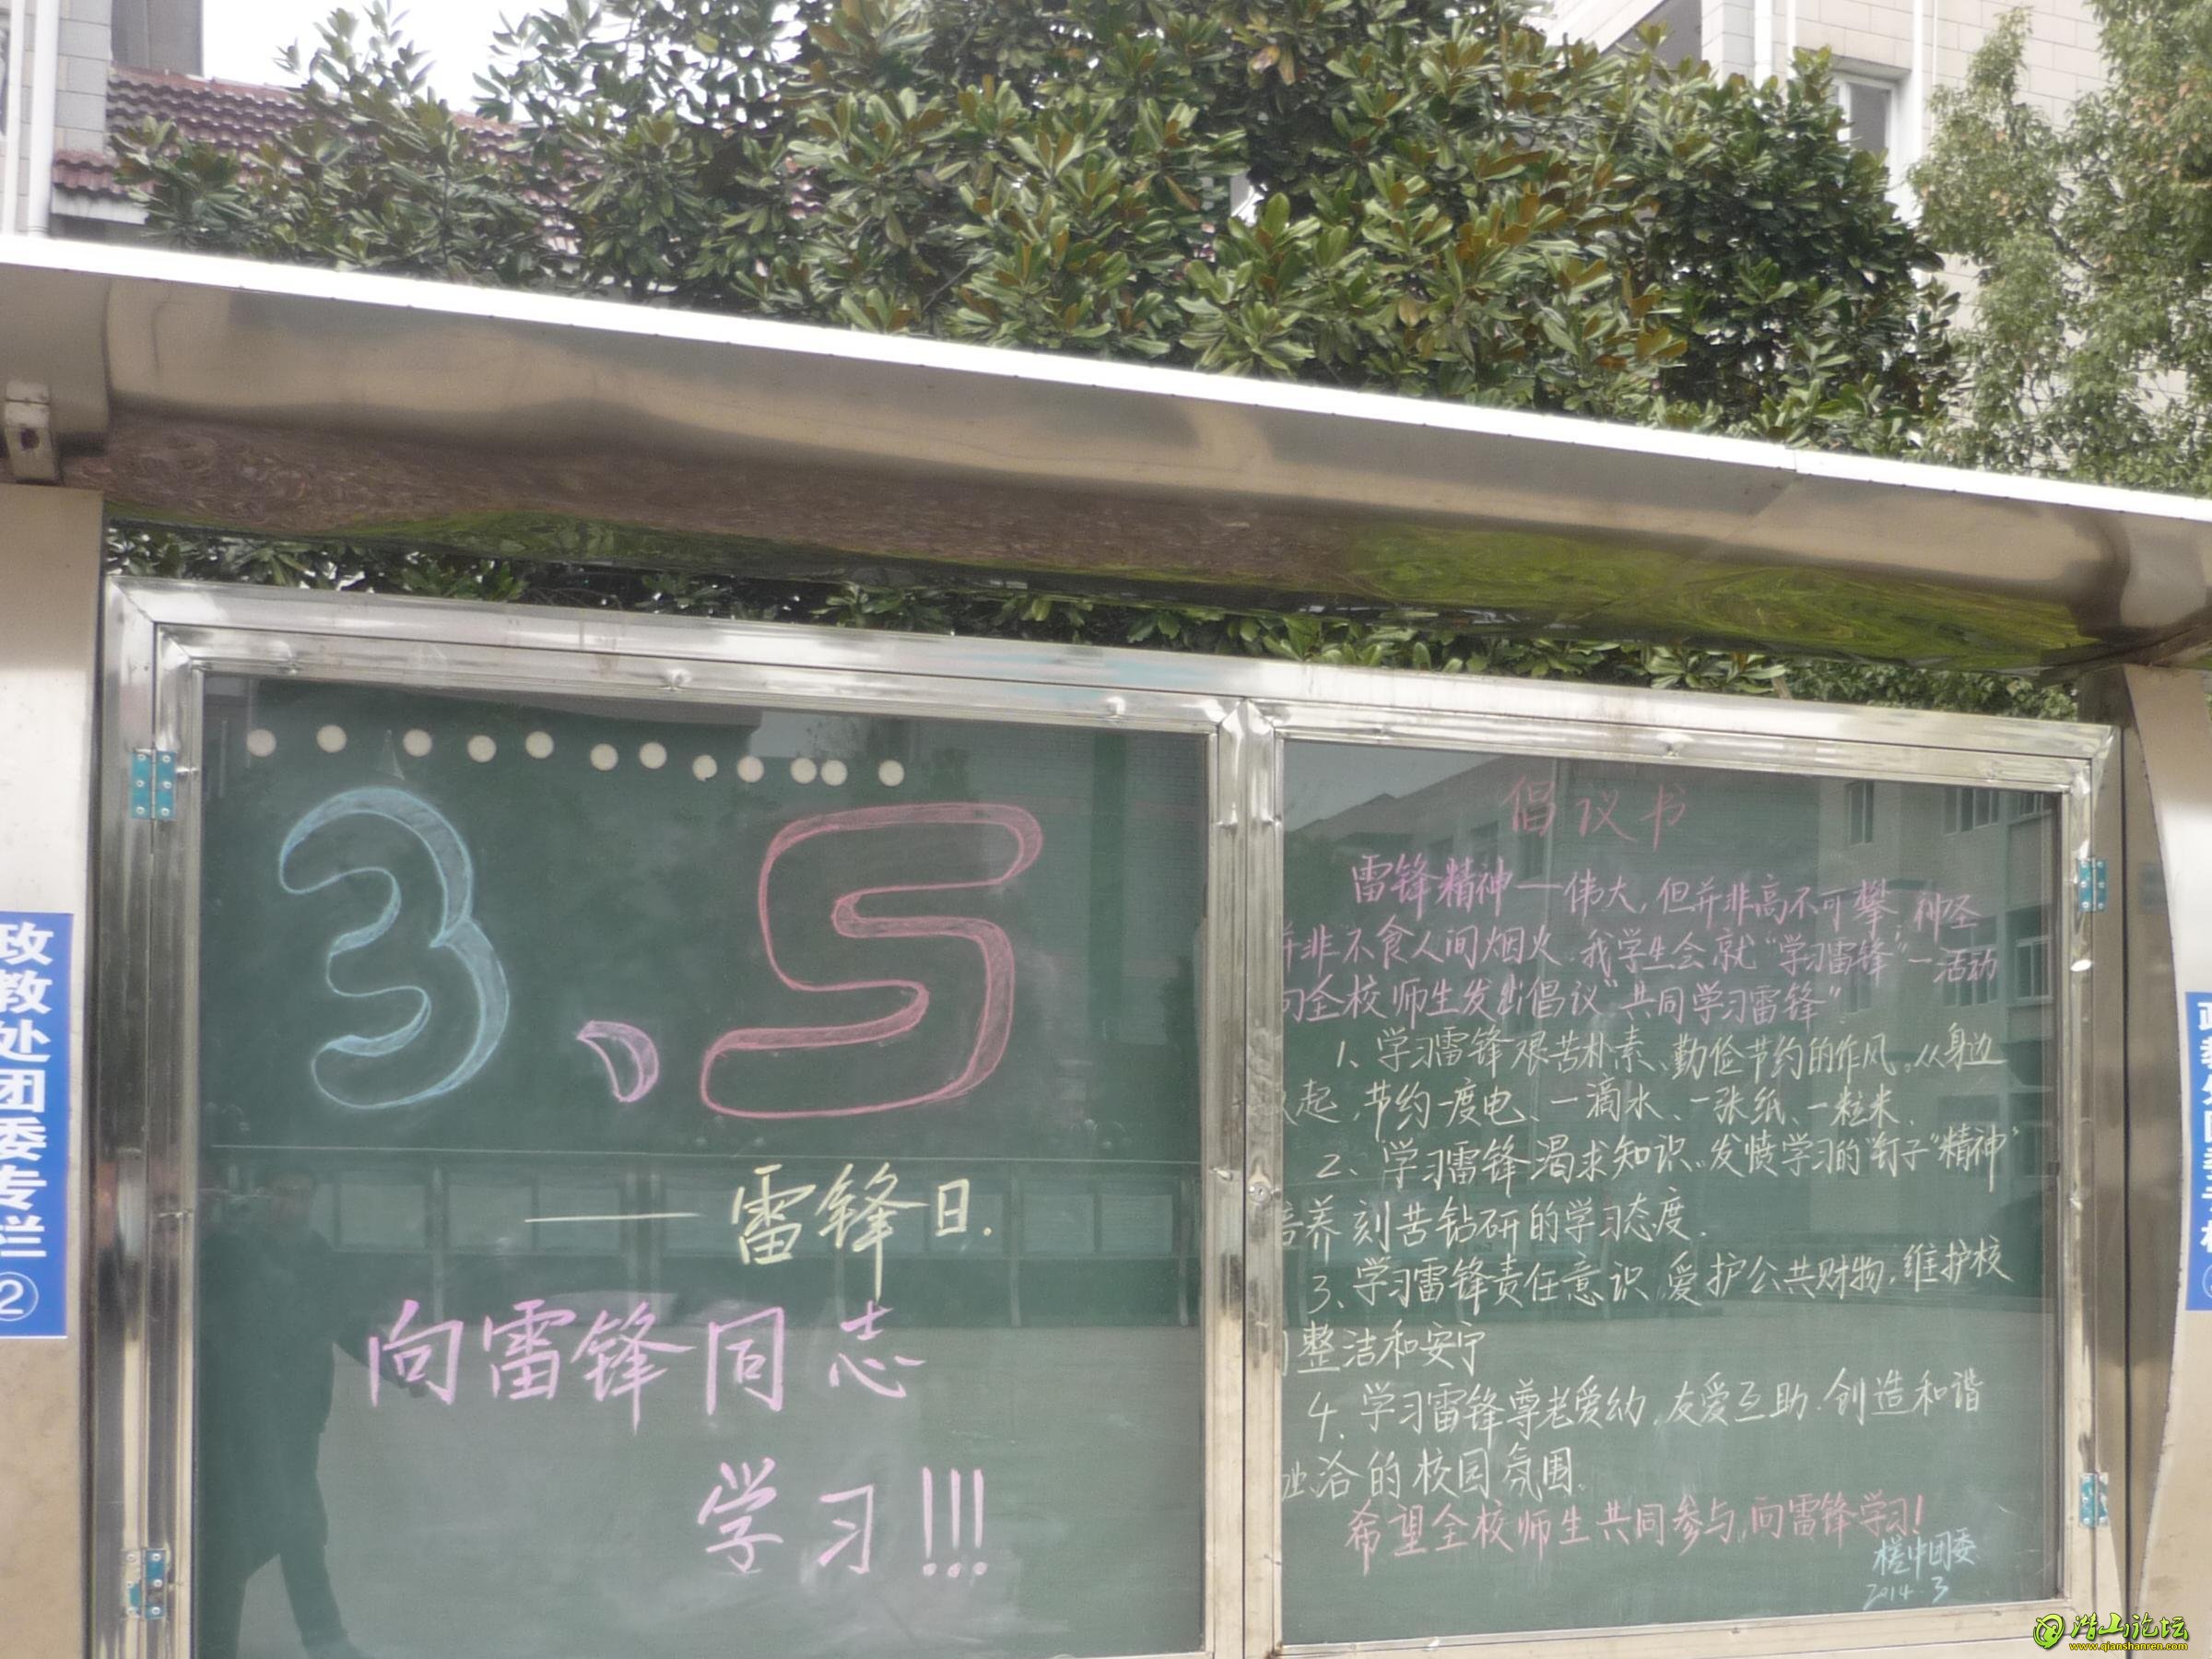 政教处团委专栏②
3、5
——雷锋日.
向雷锋同志
学习!!!
倡议书
雷锋精神一伟大,但并非高不可攀,神圣
并非不食人间烟火.我学生会就"学习雷锋"一活动
向全校师生发出倡议"共同学习雷锋"
1、学习雷锋艰苦朴素、勤俭节约的作风。从身边
起,节约一度电、一滴水、一张纸、一粒米.
2、学习雷锋渴求知识。发愤学习的"钉子"精神
培养刻苦钻研的学习态度.
3、学习雷锋责任意识,爱护公共财物,维护校
整洁和安宁
4.学习雷锋尊老爱幼,友爱互助.创造和谐
洽的校园氛围.
希望全校师生共同参与,向雷锋学习!
槎中团委
2014.3
潜山论坛
www.qianshanren.com